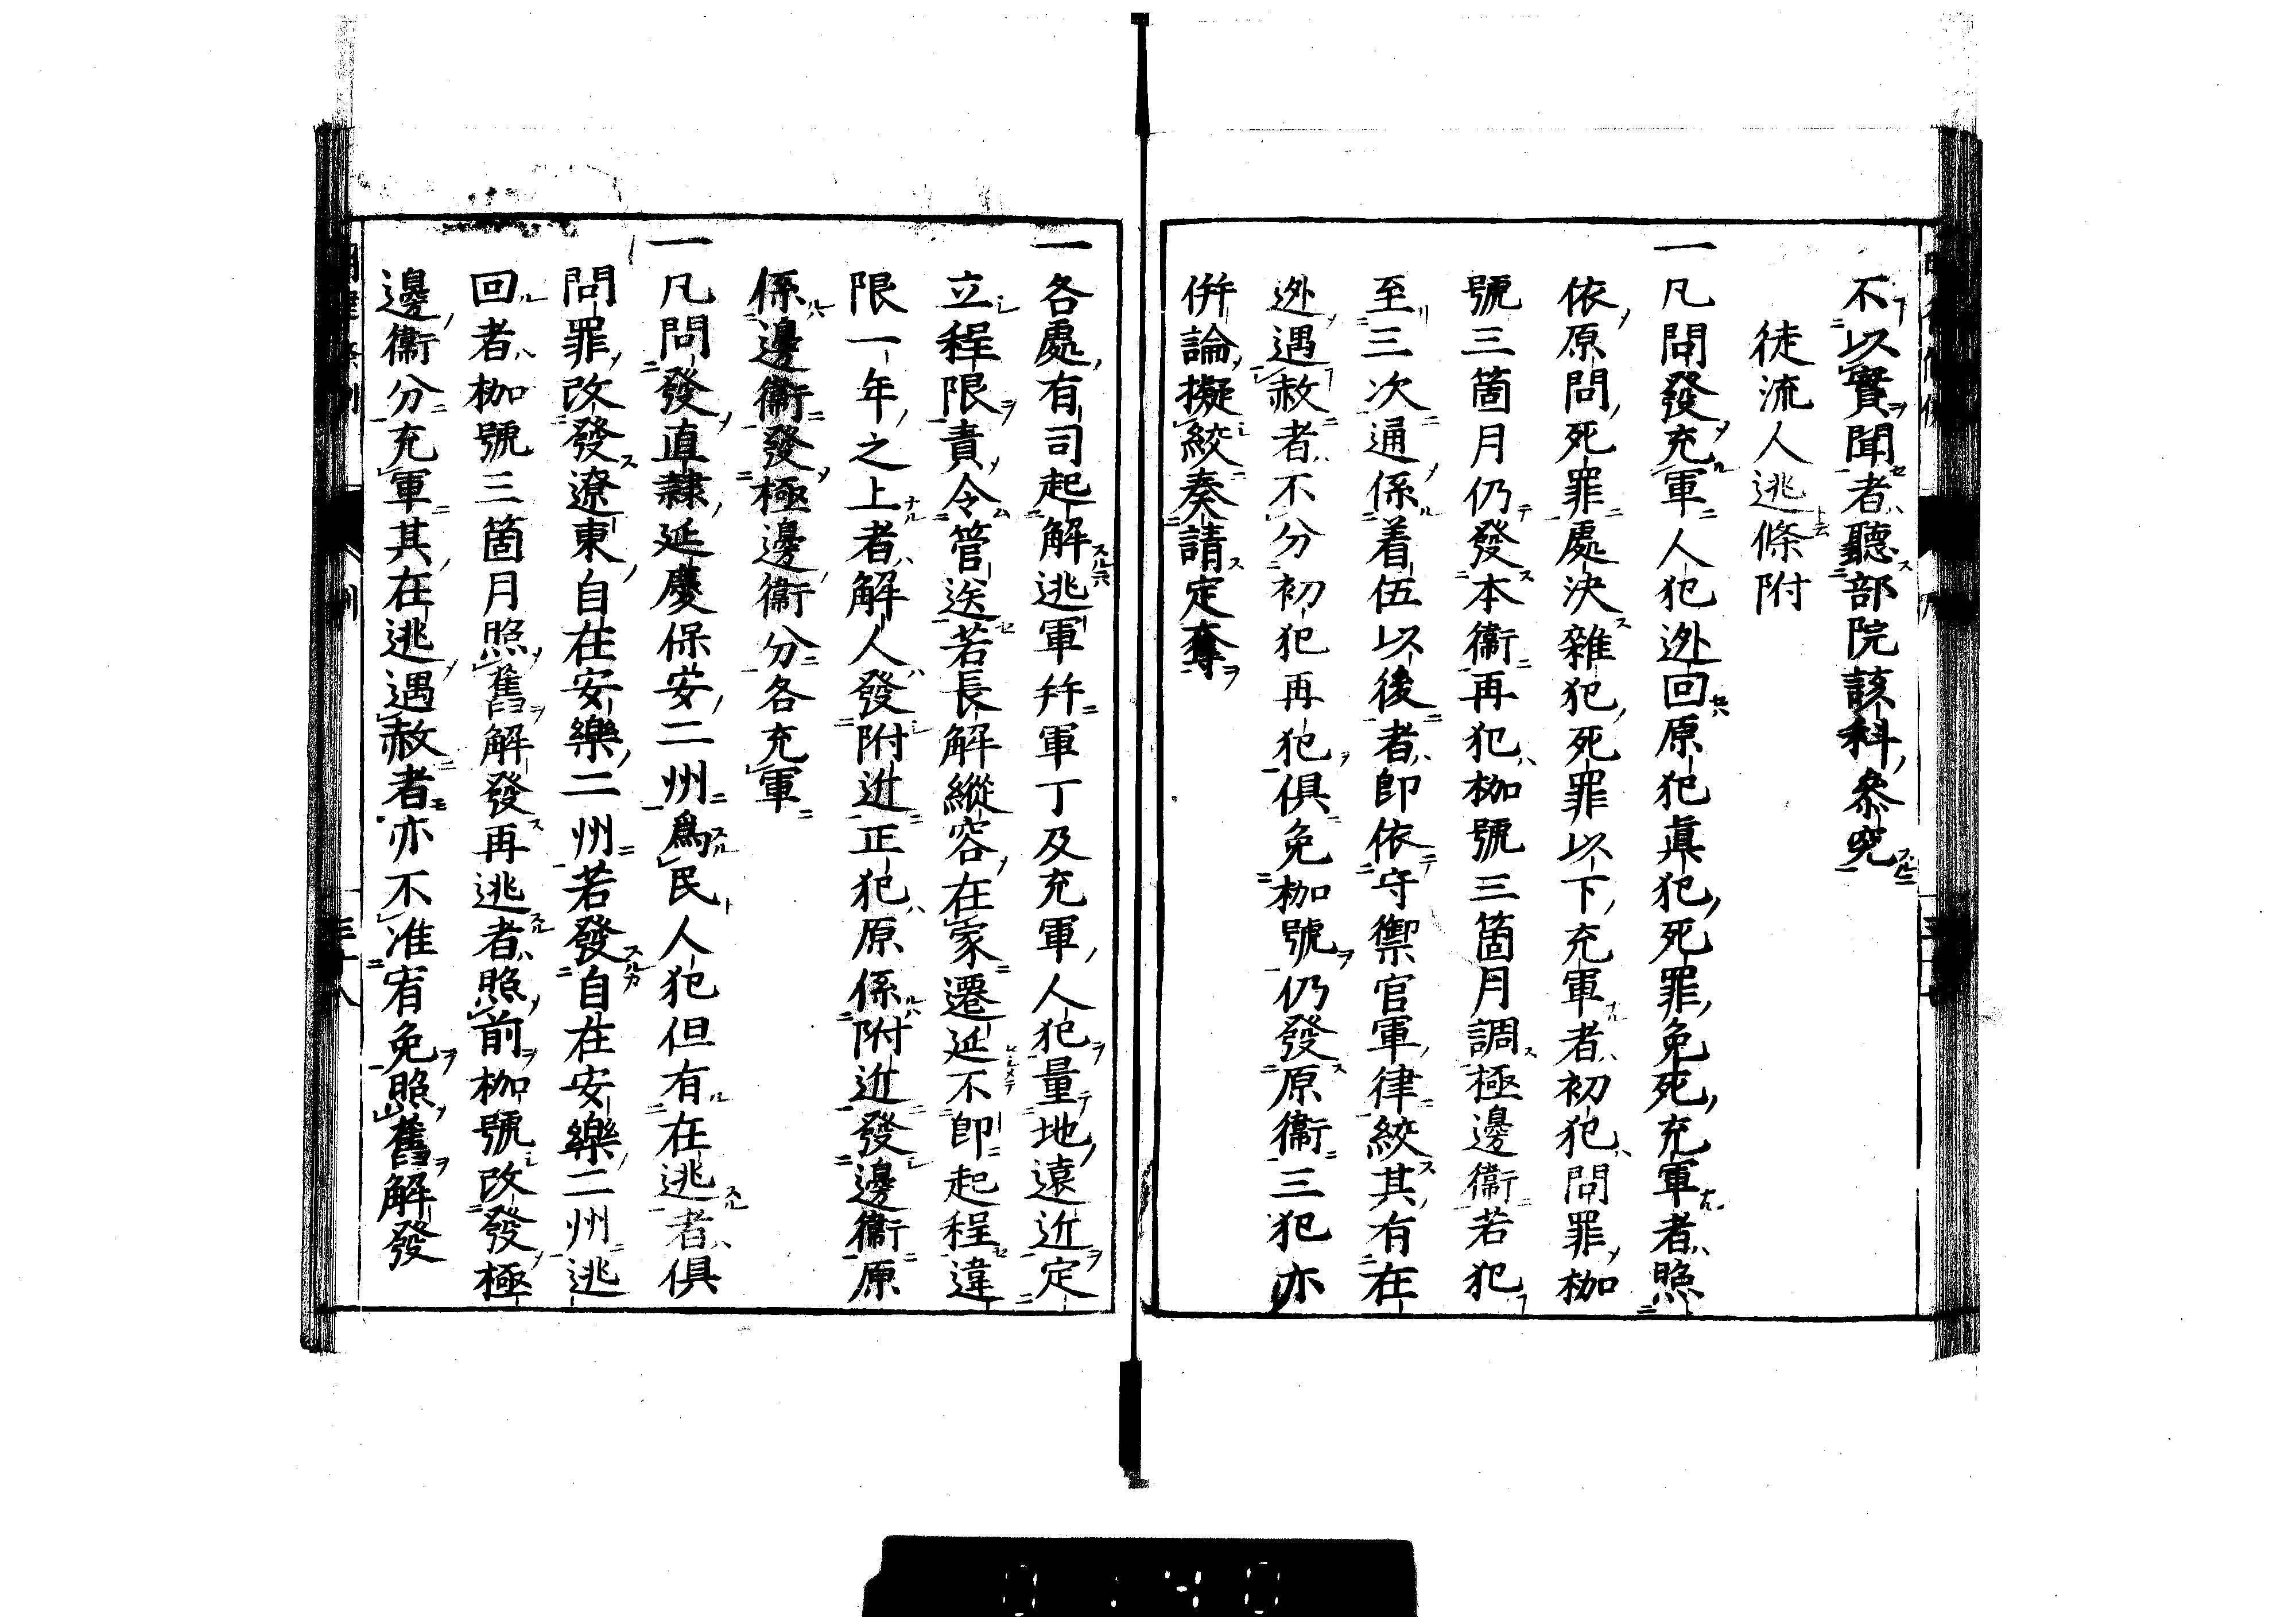 不以實聞者聽部院該科參究
徒流人逃條附
一凡問發充軍人犯逃回原犯眞犯死罪免死充軍者照
依原問死罪處決雜犯死罪以下充軍者初犯問罪枷
號三箇月仍發本衞再犯枷號三箇月調極邊衞若犯
至三次通係着伍以後者卽依守禦官軍律絞其有在
逃遇赦者不分初犯再犯俱免枷號仍發原衞三犯亦
倂論擬絞奏請定奪
一各處有司起解逃軍幷軍丁及充軍人犯量地遠近定
立程限責令管送若長解縱容在家遷延不卽起程違
限一年之上者解人發附近正犯原係附近發邊衞原
係邊衞發極邊衞分各充軍
一凡問發直隷延慶保安二州爲民人犯但有在逃者俱
問罪改發遼東自在安樂二州若發自在安樂二州逃
回者枷號三箇月照舊解發再逃者照前枷號改發極
邊衞分充軍其在逃遇赦者亦不准宥免照舊解發
0140